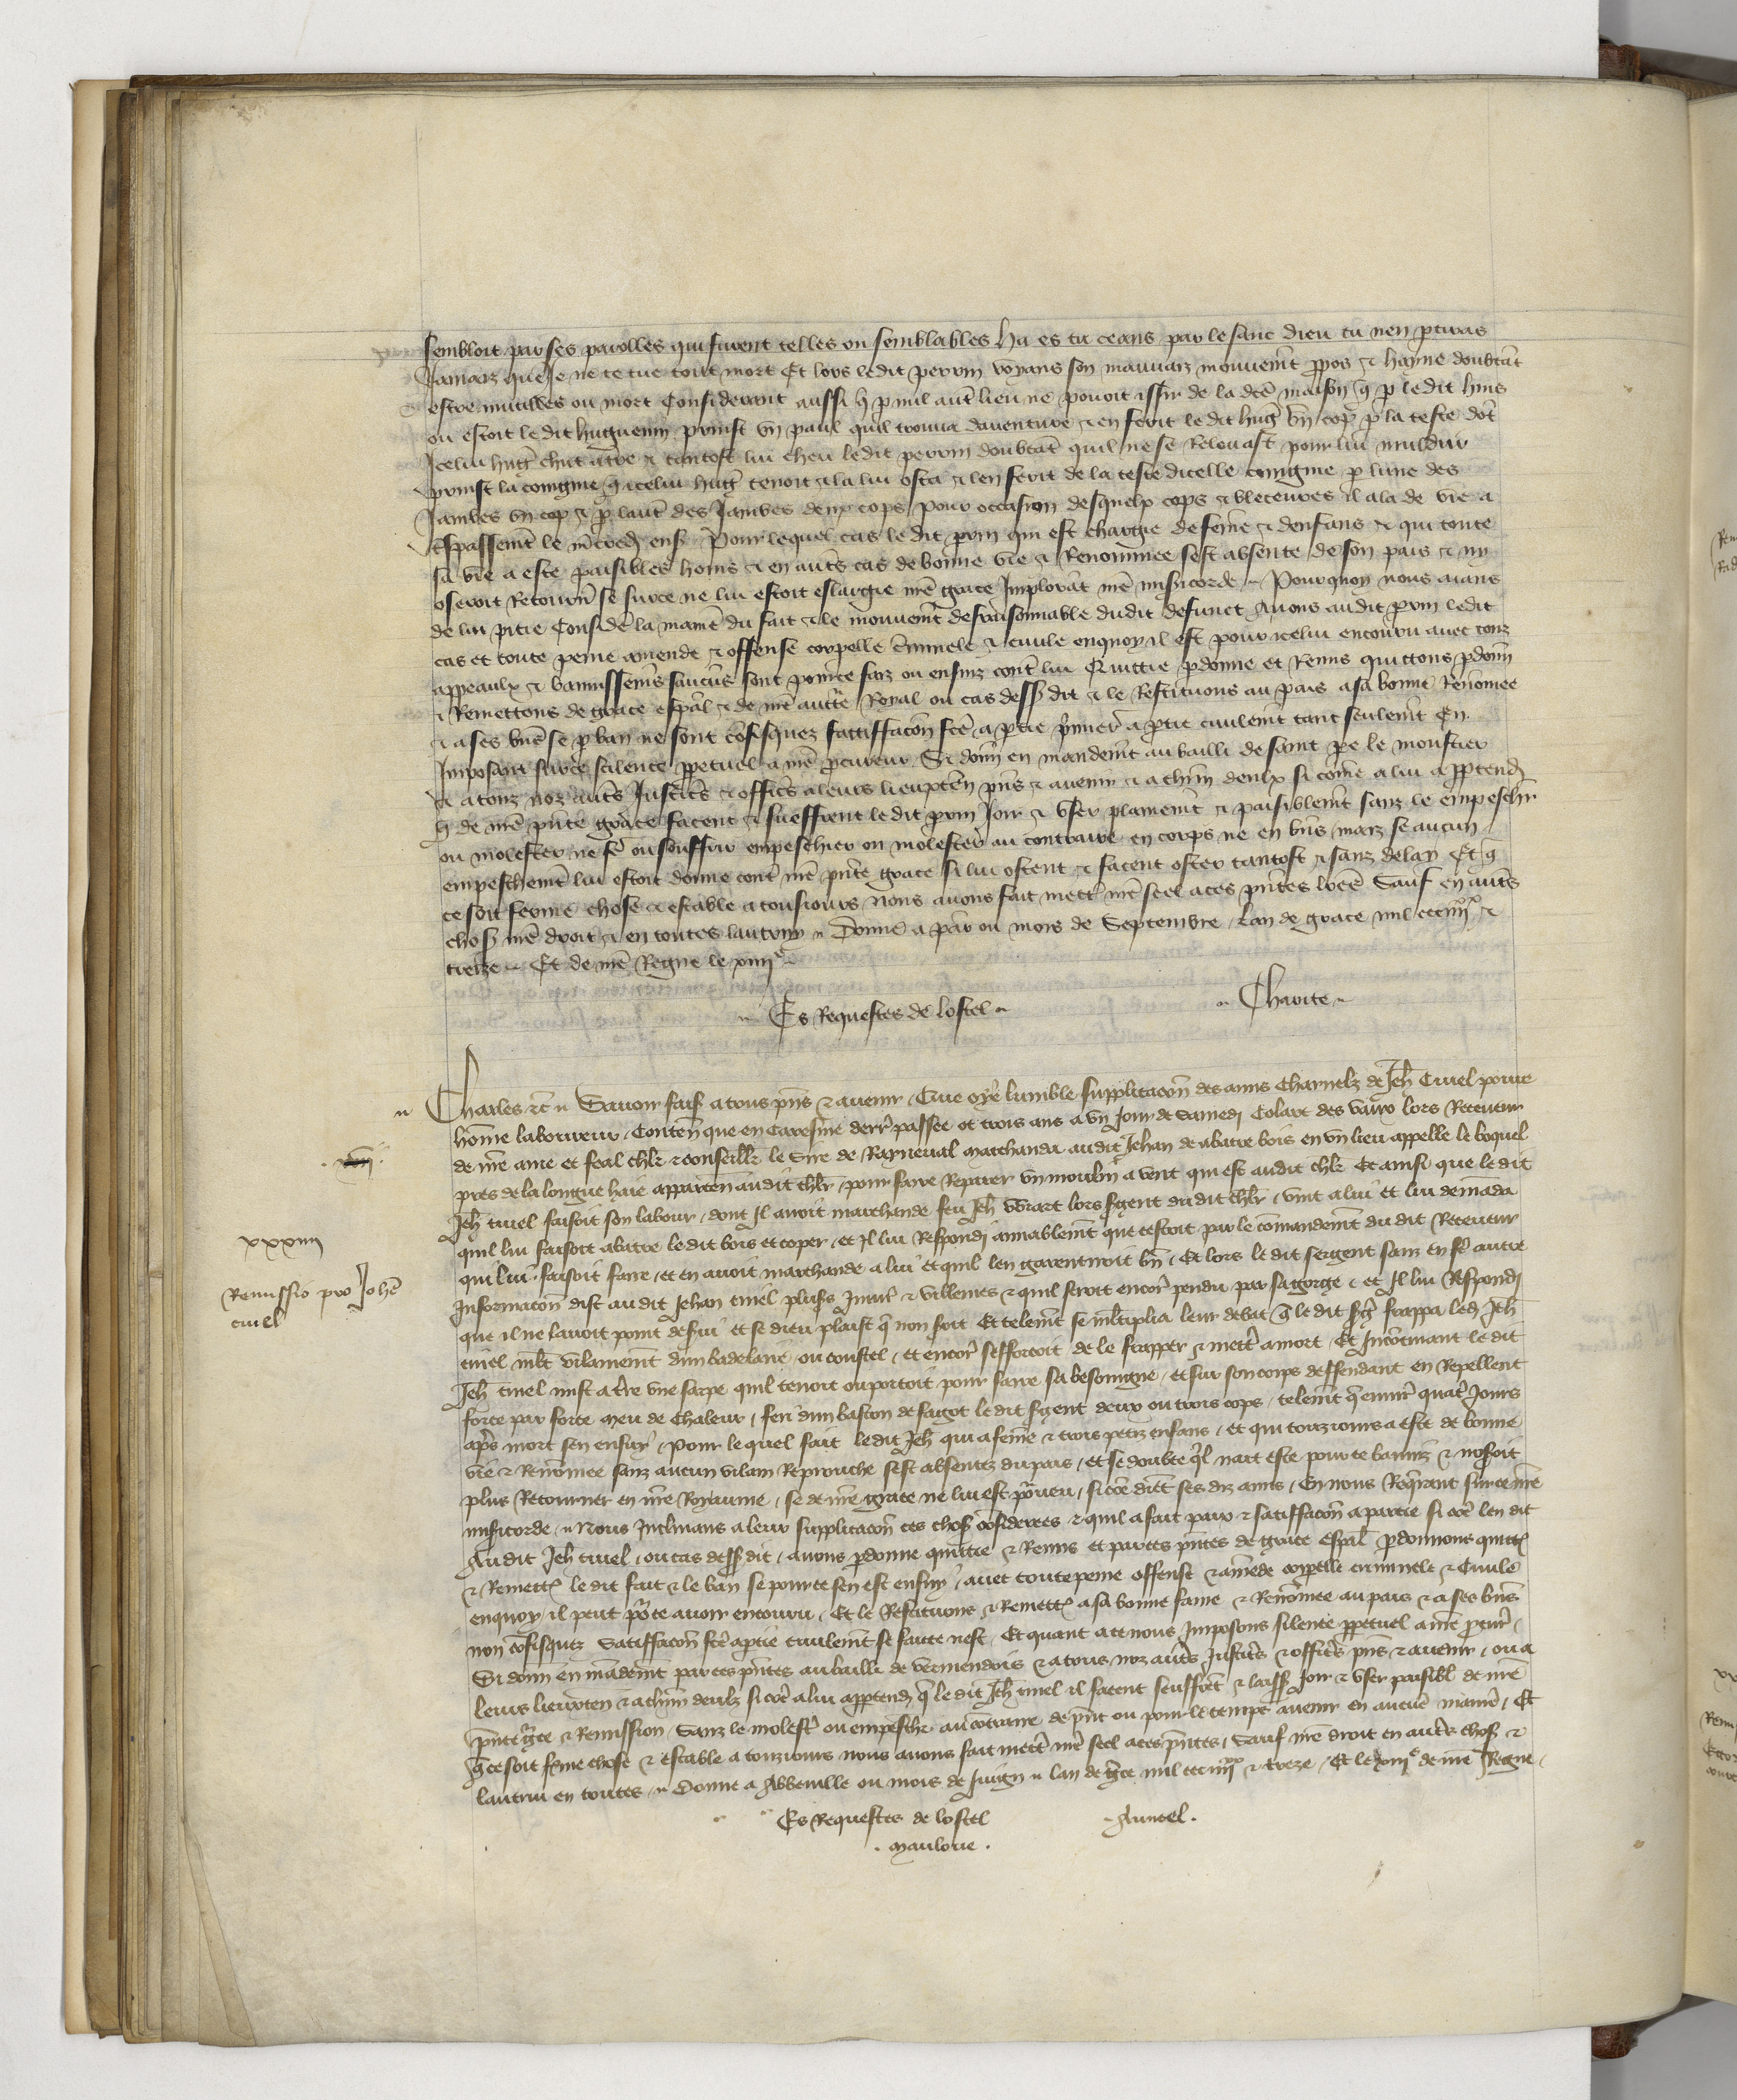 sembloit par ses parolles qui furent telles ou semblables Ha es tu ceans par le sanc dieu tu nen ptiras
Jamaiz que Je ne te tue tout mort Et lors ledit perrin voyans son mauvaiz mouvemt ppos & hayne doubtãt
estre mutilles ou mort Considerant aussi q̃ p nul aut̃ lieu ne povoit issir de la dc̃e maison q̃ p le dit huis
ou estoit le dit huguenin prinst vn paul quil trouva daventure & en ferit le dit hug̃ vn cop p la teste dõt
Icelui hug̃ chut a t̃re & tantost lui cheu le dit perrin doubtãt quil ne se relevast pour lui
prinst la coingnie q̃ icelui hug̃ tenoit & la lui osta & len ferit de la teste dicelle coingnie p lune des
Jambes vn cop & p laut̃ des Jambes deux cops pour occasion desquelx cops & bleceures il ala de vie a
trespassemt le mc̃redj ens̃ Pour lequel cas le dit prin qui est chargie de feme & denfans & qui toute
sa vie a este paisibles homs & en aut̃s cas de bonne vie & Renommee sest absente de son pais & ny
oseroit Retourñ se sur ce ne lui estoit eslargie nr̃e grace Implorãt nr̃e misicorde Pourquoy nous aians
de lui pitie Consider̃ la manie du fait & le mouvemt desraisonnable dudit defunct Avons audit prin ledit
cas et toute peine amende & offense corpelle c̃minele & civile en quoy il est pour icelui encouru avec touz
appeaulx & bannissemẽs saucũs sont pour ce faiz ou ensuiz cont̃ lui Quittie pdonne et Remis quittons pdonñ
& Remettons de grace espãl & de nr̃e auttẽ Royal ou cas dess dit & le Restituons au pais a sa bonne Renomee
& a ses biẽs se p ban ne sont cõfisquez satiffacõn fc̃e a ptie p̃mier a ptie civilemt tant seulemt En
Imposant sur ce scilence ppetuel a nr̃e pcureur Si donñ en mandemt au bailli de saint pe le moustier
& a touz noz aut̃s Justic̃s & offic̃s a leurs lieuxteñ p̃ns & avenir & a chũn deulx si cõme a lui apptend̃
q̃ de nr̃e p̃nte grace facent & sueffrent le dit prin Joir & vser plainemt & paisiblemt sanz le empeschr̃
ou molester ne fẽ ou souffrir empeschier ou molester au contraire en corps ne en biẽs maiz se aucun
empeschemt lui estoit donne cont̃ nr̃e p̃nte grace si lui ostent & facent oster tantost & sanz delay Et q̃
ce soit ferme chose & estable a tousiours nous avons fait mett̃ nr̃e seel a ces p̃ntes lr̃es Sauf en aut̃s
chos̃ nr̃e droit & en toutes lautruy Donne a par̃ ou mois de Septembre Lan de grace mil ccc iiijxx &
treize Et de nr̃e Regne le xiiije
Es Requestes de lostel Charite
Charles &c̃ Savoir fais̃ a tous p̃ns & avenir Que oye lumble supplicacõn des amis Charnelz de Jeh̃ Civel povre
hõme laboureur Conteñ que en Caresme derr̃ passee ot trois ans a vn Jour de Samedj Colart des vaux lors Receveur
de nr̃e ame et feal chlr̃ & conseillr̃ le Sire de Rayneval marchanda audit Jehan de abatre bois en vn lieu appelle le boquel
pres de la longue haie apparteñ audit chlr̃ pour faire Reparer vn moulin a vent qui est audit chlr̃ Et ainsi que le dit
Jeh̃ civel faisoit son labour dont Il avoit marchande feu Jeh̃ lors sgent dudit chlr̃ vint a lui et lui demãda
quil lui faisoit abatre le dit bois et coper et Il lui Respondj amiablemt que cestoit par le cõmandemt du dit Receveur
qui lui faisoit faire et en avoit marchande a lui et quil len garentiroit bñ Et lors le dit sergent sanz en fẽ autre
Informacõn dist audit Jehan civel plus̃s Iniur̃ & villenies & quil seroit encor̃ pendu par sa gorge et Il lui Respondj
que il ne lavoit point desvi et se dieu plaist q̃ non soit Et telemt se mltiplia leur debat q̃ le dit sg̃ frappa led̃ Jeh̃
civel mlt̃ vilainemt dun badelaire ou coustel et encor̃ sefforcoit de le frapper & mett̃ a mort Et Incõtinant le dit
Jeh̃ civel mist a t̃re vne sarpe quil tenoit ou portoit pour faire sa besoingne et sur son corps deffendant en Repellent
force par force meu de chaleur feri dun baston de fagot le dit sgent deux ou trois cops telemt q̃ envir̃ quat̃ Jours
ap̃s mort sen ensuy Pour lequel fait le dit Jeh̃ qui a feme & trois petiz enfans et qui touziours a este de bonne
vie & Renõmee sanz aucun vilain Reprouche sest absentez du pais et se doubte q̃l nait este pour ce banniz & nosoit
plus Retourner en nr̃e Royaume se de nr̃e grace ne lui est pourveu si cõe diẽt ses diz amis En nous Req̃rant sur ce nr̃e
misicorde Nous Inclinans a leur supplicacõn ces chos̃ cõsiderees & quil a fait paix & satiffacõn a partie si cõe len dit
Audit Jeh̃ civel ou cas dess dit avons pdonne quittie & Remis et par ces p̃ntes de grace espãl pdonnons quittõs
& Remettõs le dit fait & le ban se pour ce sen est ensuy avec toute peine offense & amẽde corpelle criminele & Civile
en quoy il peut pour ce avoir encouru Et le Restituons & Remettõs a sa bonne fame & Renõmee au pais & a ses biẽs
non cõfisquez Satiffacõn fc̃e a ptie civilemt se faite nest Et quant a ce nous Imposons silence ppetuel a nr̃e pcur̃
Si donñ en mãdemt par ces p̃ntes au bailli de vermendois & a tous noz aut̃s Justic̃s & offic̃s p̃ns & avenir ou a
leurs lieuxteñ & a chũn deulz si cõe a lui apptend̃ q̃ le dit Jeh̃ civel il facent seuffrẽt & laiss̃ Joir & vser paisibl̃ de nr̃e
p̃nte g̃ce & Remission Sanz le molest̃ ou empeschr̃ au cõtraire de p̃nt ou pour le temps avenir en aucũe manie Et
q̃ ce soit fme chose & estable a touziours nous avons fait mett̃ nr̃e seel a ces p̃ntes Sauf nr̃e droit en aut̃s chos̃ &
lautrui en toutes Donne a Abbeville ou mois de Juign lan de g̃ce mil ccc iiijxx & treze Et le xiije de nr̃e Regne
Es Requestes de lostel
mauloue
xxxiiij
Remissio pro Johẽ
civel